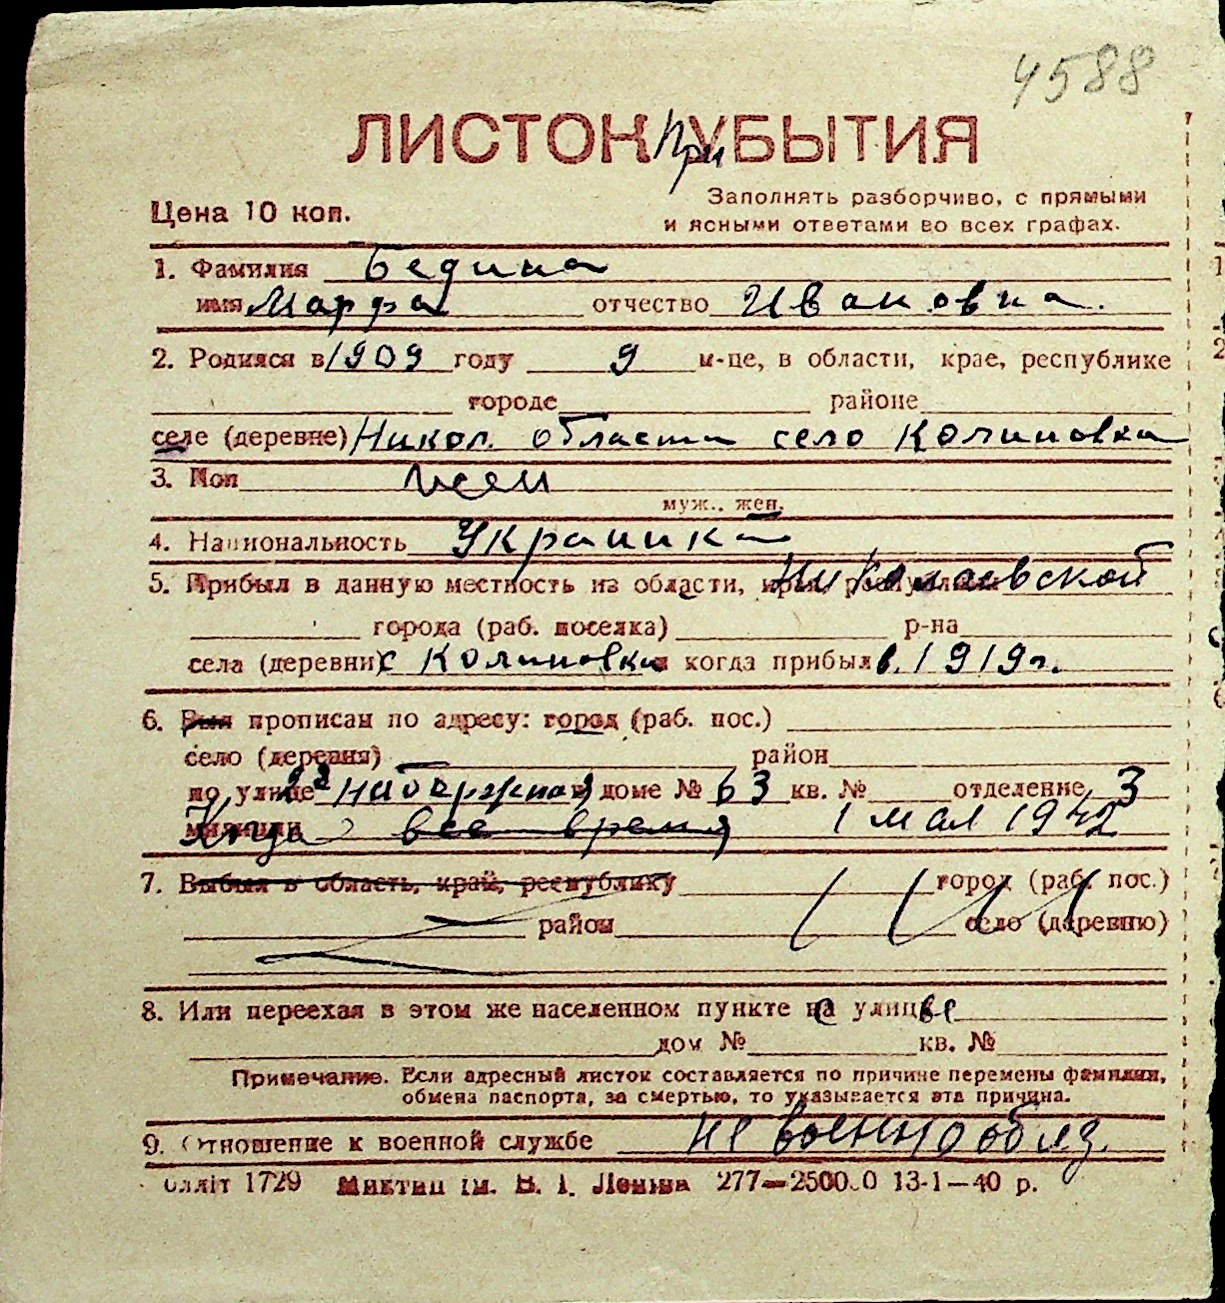 4588
ЛИСТОК При УБЫТИЯ
Цена 10 коп.
Заполнять разборчиво, с прямыми
и ясными ответами во всех графах.
1. Фамилия Бедина
имя Марфа отчество Ивановна.
2. Родился в 1909 году 9 м-це, в области, крае, республике
городе районе
селе (деревне) Никол. области село Калиновка
3. Пол жен
муж., жен.
4. Национальность Украинка
5. Прибыл в данную местность из области, края, республики Николаевской
города (раб. поселка) р-на
села (деревни) с Калиновка и когда прибыл в 1919 г.
6. Был прописан по адресу: город (раб. пос.)
село (деревня) район
по улице набережная в доме № 63 кв. № отделение 3
милиции все время 1 мая 1942
7. Выбыл в область, край, республику город (раб. пос.)
район село (деревню)
8. Или переехал в этом же населенном пункте на улицу
дом № кв. №
Примечание. Если адресный листок составляется по причине перемены фамилии,
обмена паспорта, за смертью, то указывается эта причина.
9. Отношение к военной службе не военнообяз.
1729 ім. В. І. Леніна 277—2500 0 13-1—40 р.